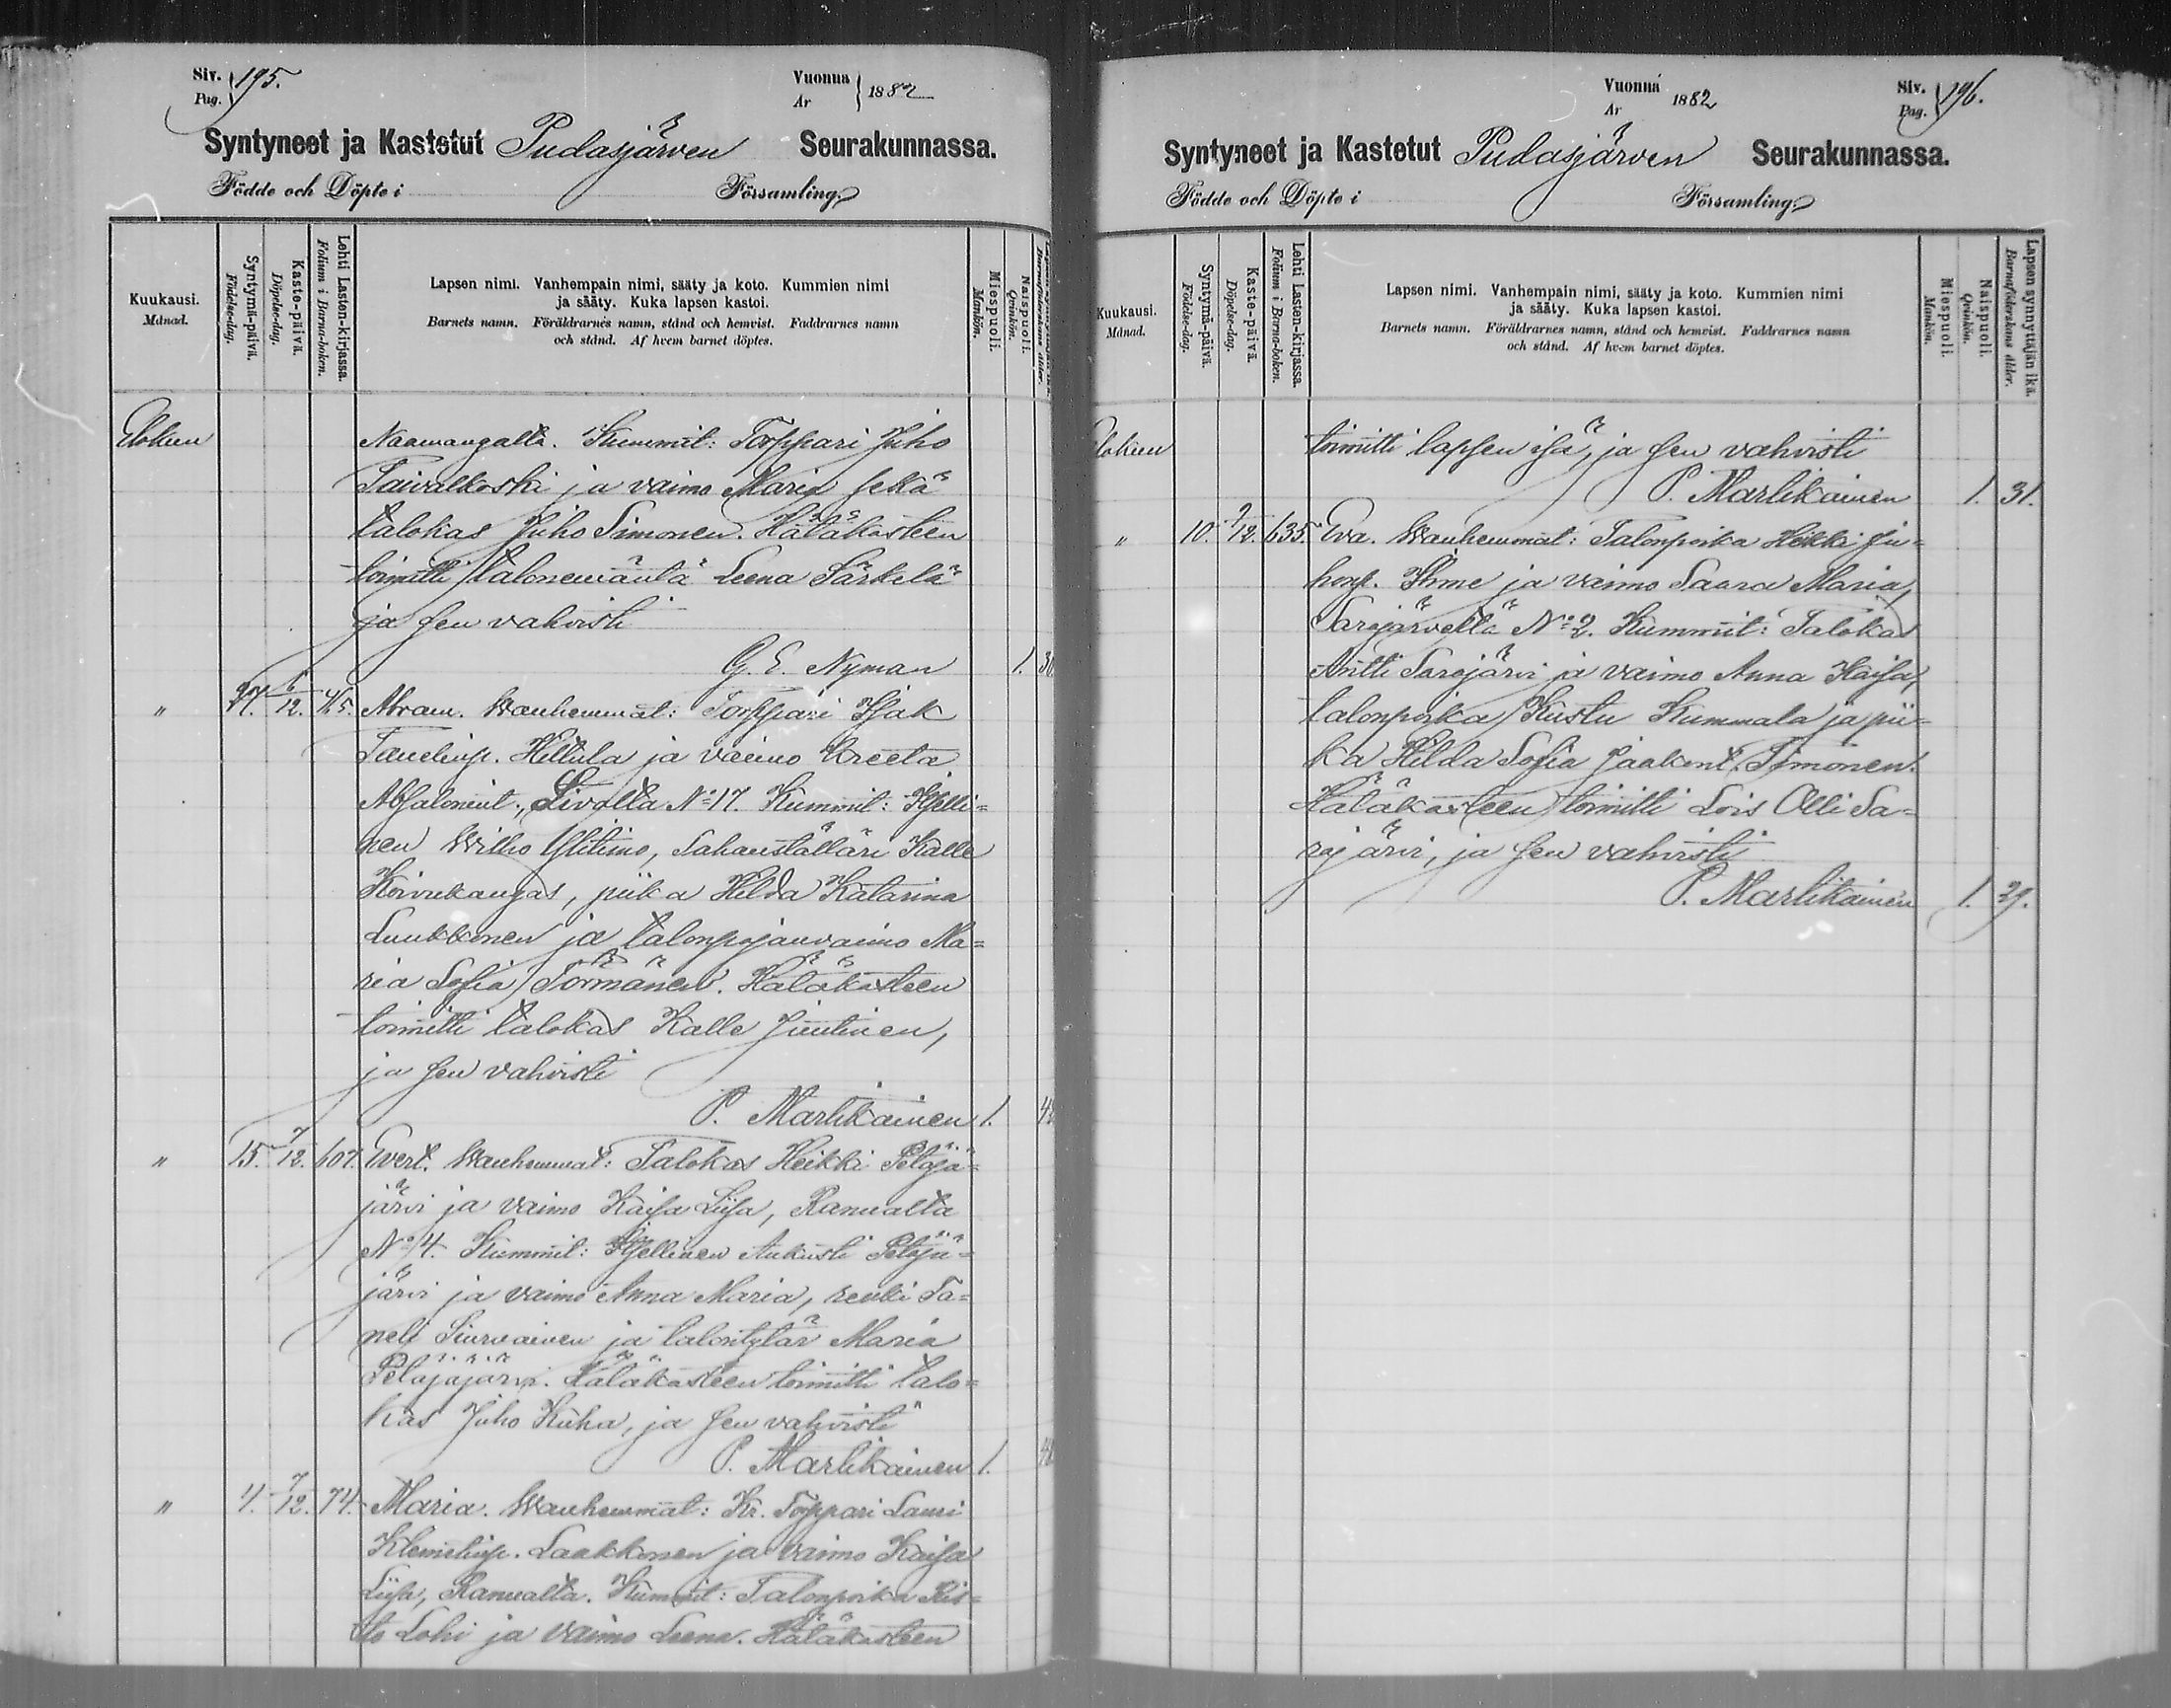 Siv. 195.
Pag.
Vuonna 1882
År
Syntyneet ja Kastetut Pudasjärven Seurakunnassa.
Födde och Döpte i Församling.
Kuukausi.
Månad.
Syntymä-päivä.
Födelse-dag.
Kaste-päivä.
Döpelse-dag.
Lehti Lasten-kirjassa.
Folium i Barna-boken.
Lapsen nimi. Vanhempain nimi, sääty ja koto. Kummien nimi
ja sääty. Kuka lapsen kastoi.
Barnets namn. Föräldrarnes namn, stånd och hemvist. Faddrarnes namn
och stånd. Af hvem barnet döptes.
Miespuoli.
Mankön.
Naispuoli.
Qvinkön.
Elokuu Naamangalta. Kummit: Torppari Juho
Taivalkoski ja vaimo Maria sekä
talokas Juho Simonen. Hätäkasteen
toimitti talonemäntä Leena Särkelä
ja sen vahvisti
G. E. Nyman 1.
" 6/12. Abram. Wanhemmat: Torppari Isak
Tanelinp. Hiltula ja vaimo Kreeta
Absalomint., Livolta No 17. Kummit: Itselli=
nen Wilho Ylitimo, Sahanställäri Kalle
Koivukangas, piika Hilda Katarina
Luukkonen ja talonpojanvaimo Ma=
ria Sofia Törmänen. Hätäkasteen
toimitti talokas Kalle Juutinen,
ja sen vahvisti
P. Martikainen 1.
" 15. 7/12. 607. Evert. Wanhemmat: Talokas Heikki Petäjä=
järvi ja vaimo Kaisa Liisa, Ranualta
No 4. Kummit: Itsellinen Aukusti Petäjä=
järvi ja vaimo Anna Maria, renki Ta=
neli Siurvainen ja talontytär Maria
Petäjäjärvi. Hätäkasteen toimitti talo=
kas Juho Kuha, ja sen vahvisti
P. Martikainen 1.
" 4. 7/12. 74. Maria. Wanhemmat: Kr. Torppari Lauri
Klemetinp. Laakkonen ja vaimo Kaisa
Liisa, Ranualta. Kummit: Talonpoika Ris=
to Lohi ja vaimo Leena. Hätäkasteen
Vuonna 1882
År
Siv. 196.
Pag.
Syntyneet ja Kastetut Pudasjärven Seurakunnassa.
Födde och Döpte i Församling.
Kuukausi.
Månad.
Syntymä-päivä.
Födelse-dag.
Kaste-päivä.
Döpelse-dag.
Lehti Lasten-kirjassa.
Folium i Barna-boken.
Lapsen nimi. Vanhempain nimi, sääty ja koto. Kummien nimi
ja sääty. Kuka lapsen kastoi.
Barnets namn. Föräldrarnes namn, stånd och hemvist. Faddrarnes namn
och stånd. Af hvem barnet döptes.
Miespuoli.
Mankön.
Naispuoli.
Qvinkön.
Lapsen synnyttäjän ikä.
Barnaföderskans ålder.
lokuu toimitti lapsen isä, ja sen vahvisti
P. Martikainen 1. 31.
" 10. 9/12. 635. Eva. Wanhemmat: Talonpoika Heikki Ju=
honp. Ihme ja vaimo Saara Maria,
Sarajärveltä No 2. Kummit: Talokas
Antti Sarajärvi ja vaimo Anna Kaisa,
talonpoika Kustu Kummala ja pii=
ka Hilda Sofia Jaakont. Timonen.
Hätäkasteen toimitti Lois Olli Sa=
rajärvi, ja sen vahvisti
P. Martikainen 1. 29.